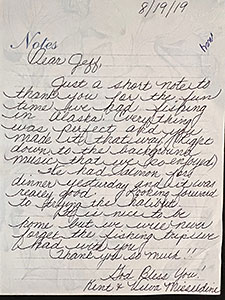 8/19/19
Notes
Dear Jeff,
Just a short note to
thank you for the fun
time we had fishing
in Alaska. Everything
was perfect and you
made it that way. (Right
down to the background
music that we so enjoyed)
We had salmon for
dinner yesterday and it was
very good. Looking forward
to trying the halibut.
It is nice to be
home but we will never
forget the fishing trip we
had with you!
Thank you so much!!
God Bless You!
Kent &